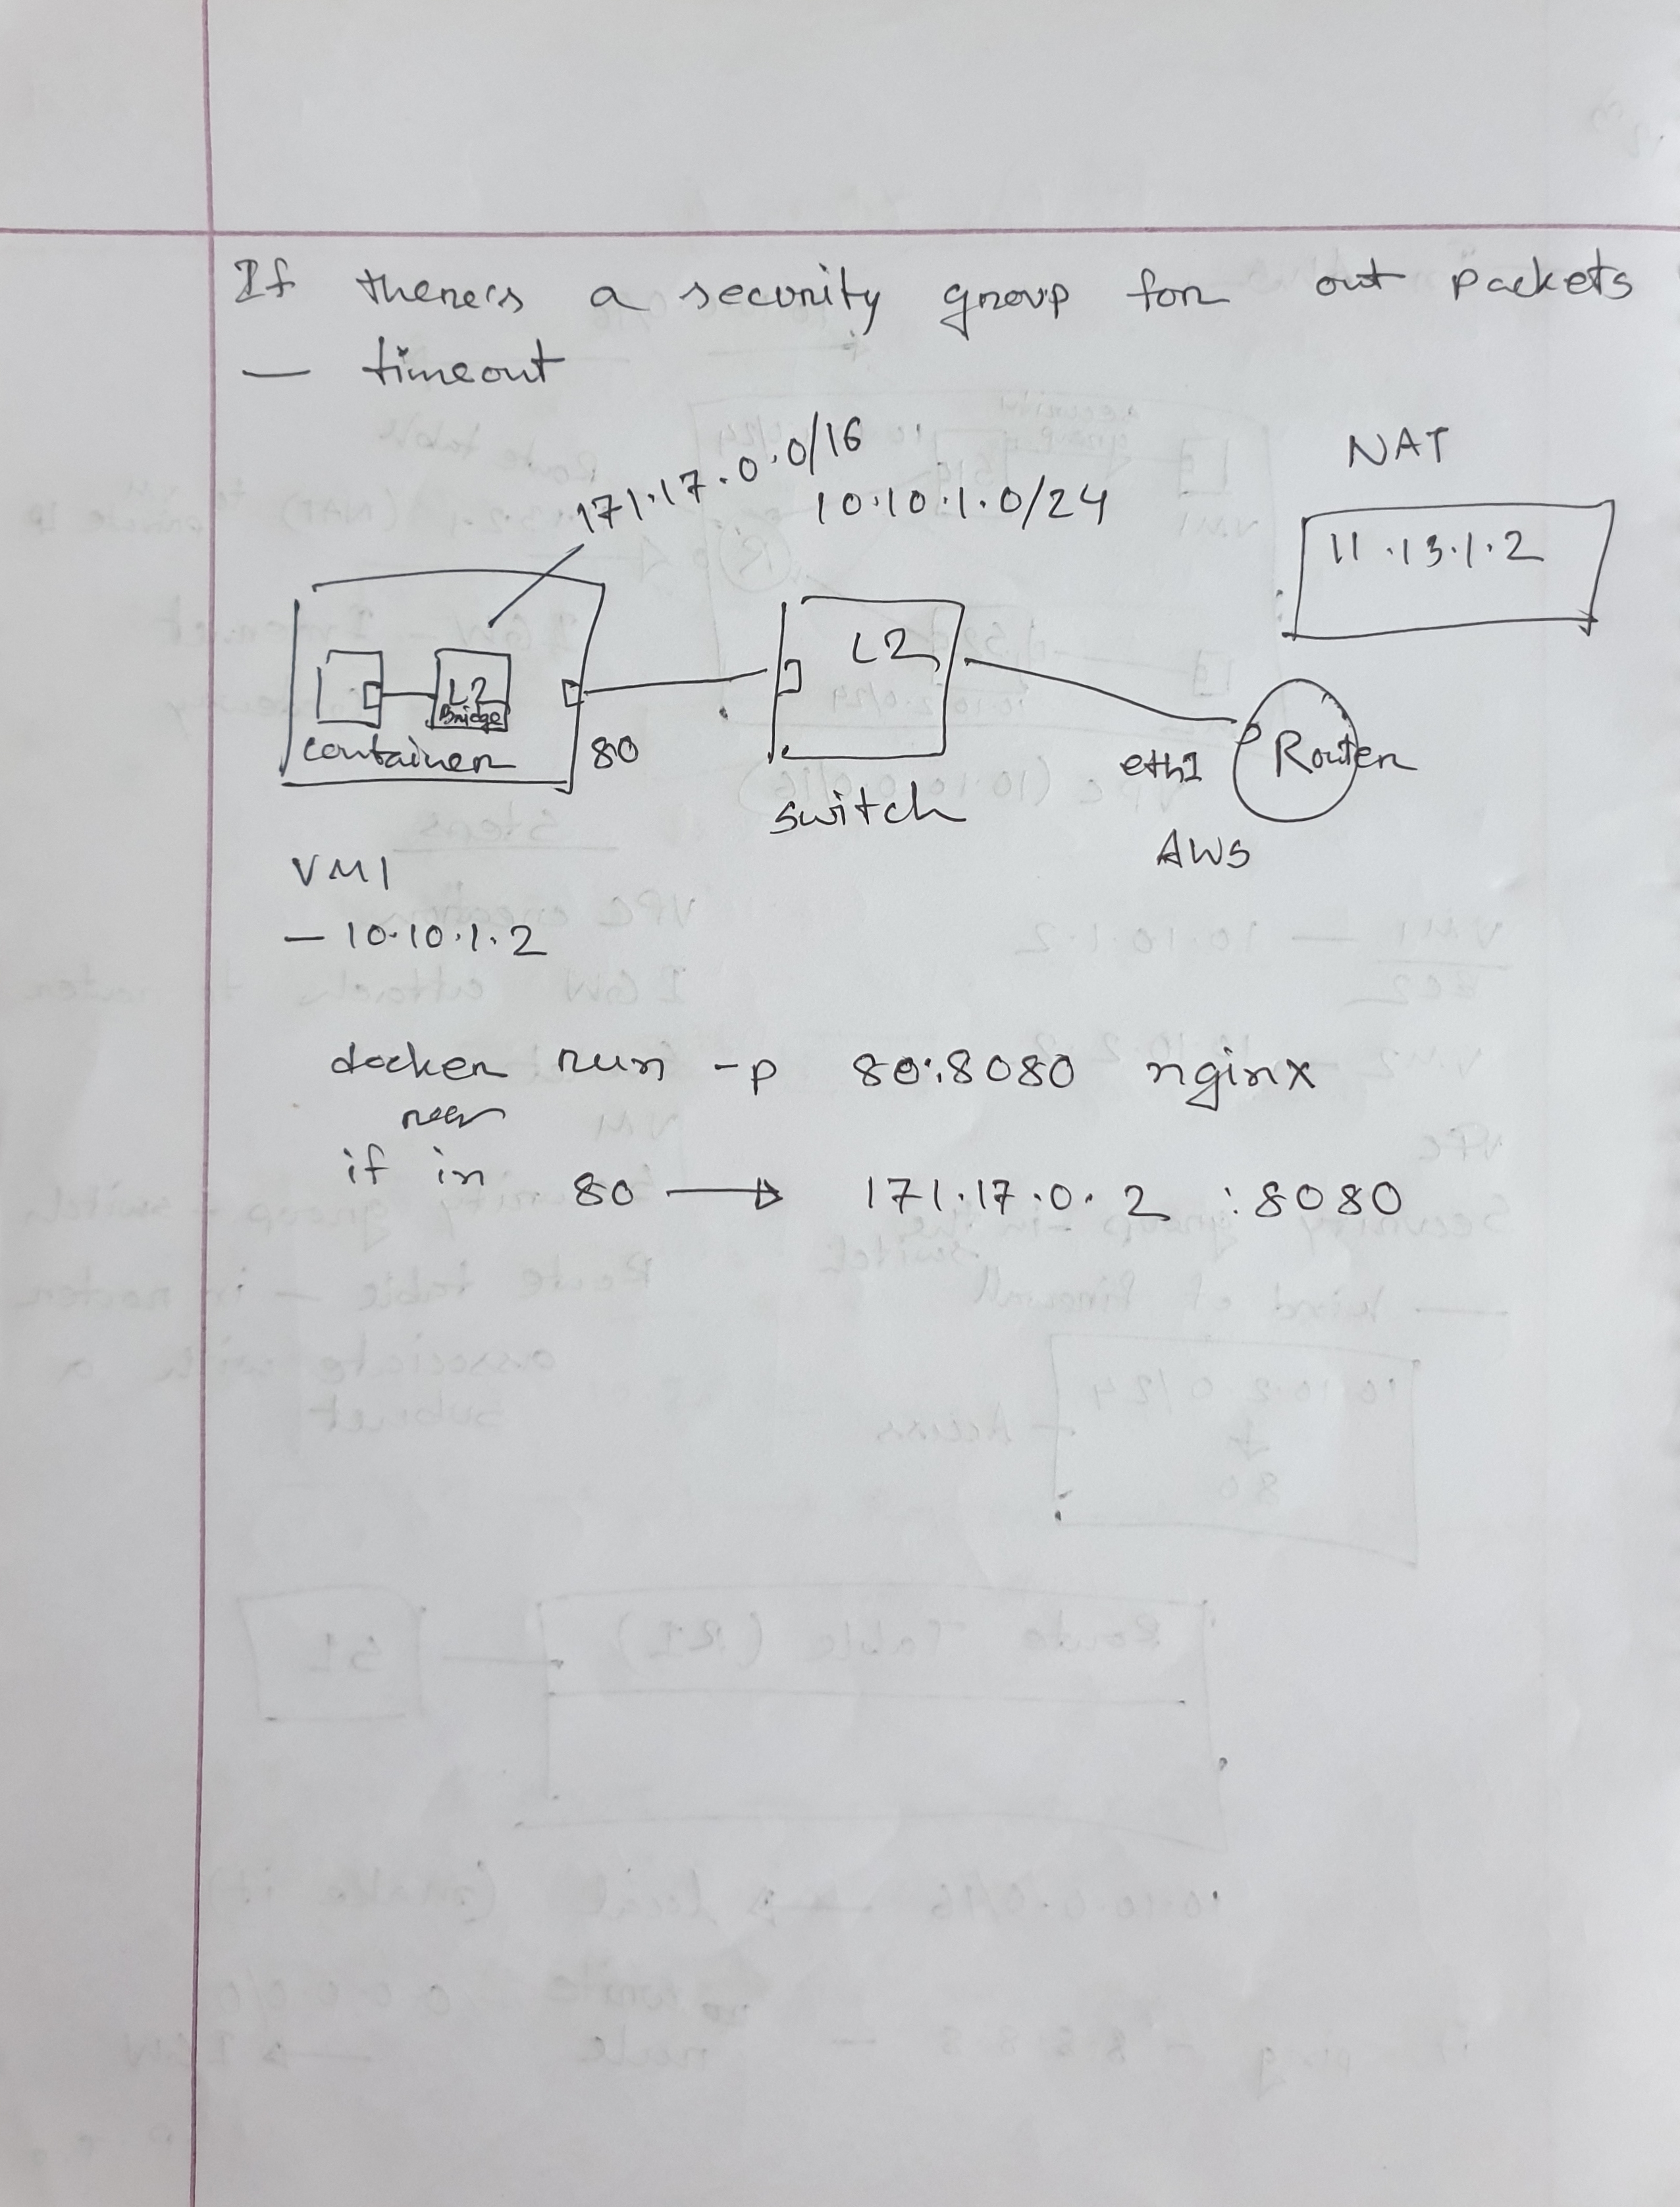 If there's a security group for out packets
— timeout
171.17.0.0/16
10.10.1.0/24
NAT
11.13.1.2
L2
Bridge
container
80
L2
switch
eth1
Router
AWS
VM1
— 10.10.1.2
docker run -p 80:8080 nginx
if in 80 → 171.17.0.2 :8080